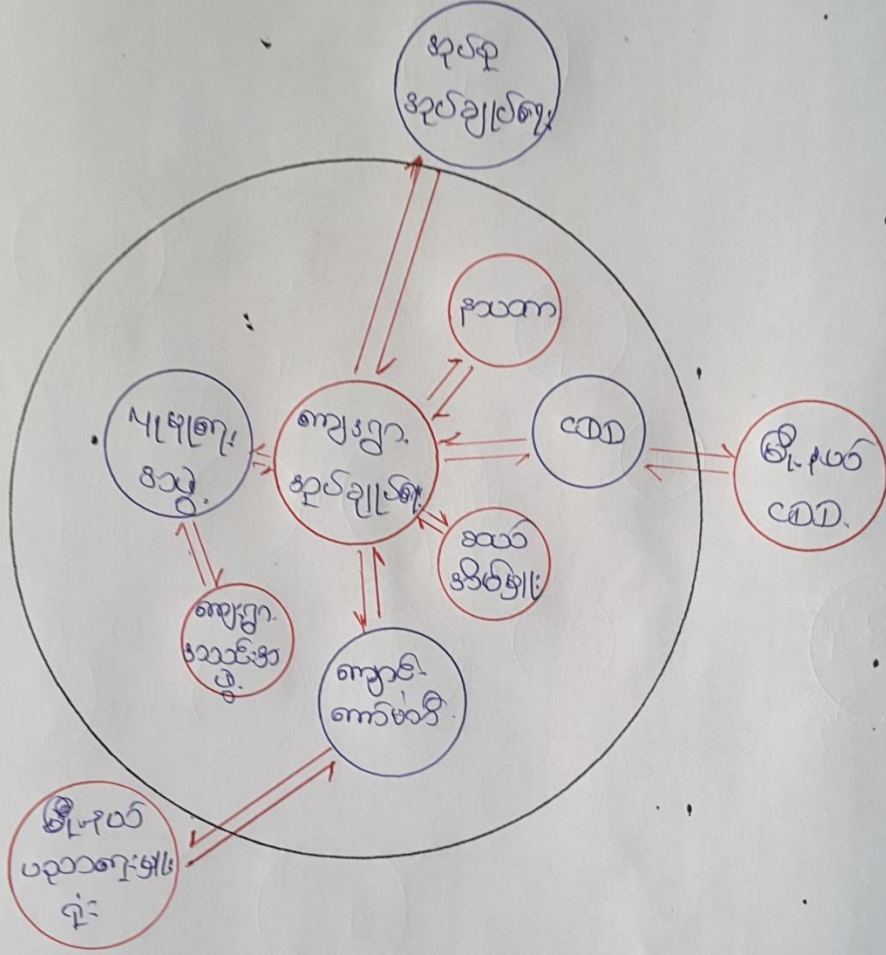 အုပ်စု
အုပ်ချုပ်ရေး
နာယကာ
ကျေးရွာ
အုပ်ချုပ်ရေး
CDD
မြို့နယ်
CDD.
ရပ်ရွာရေး
အဖွဲ့
ဆယ်
အိမ်မှူး
ကျေးရွာ
အသင်းအ
ဖွဲ့
ကျောင်း
ကော်မတီ
မြို့နယ်
ပညာရေးမှူး
ရုံး